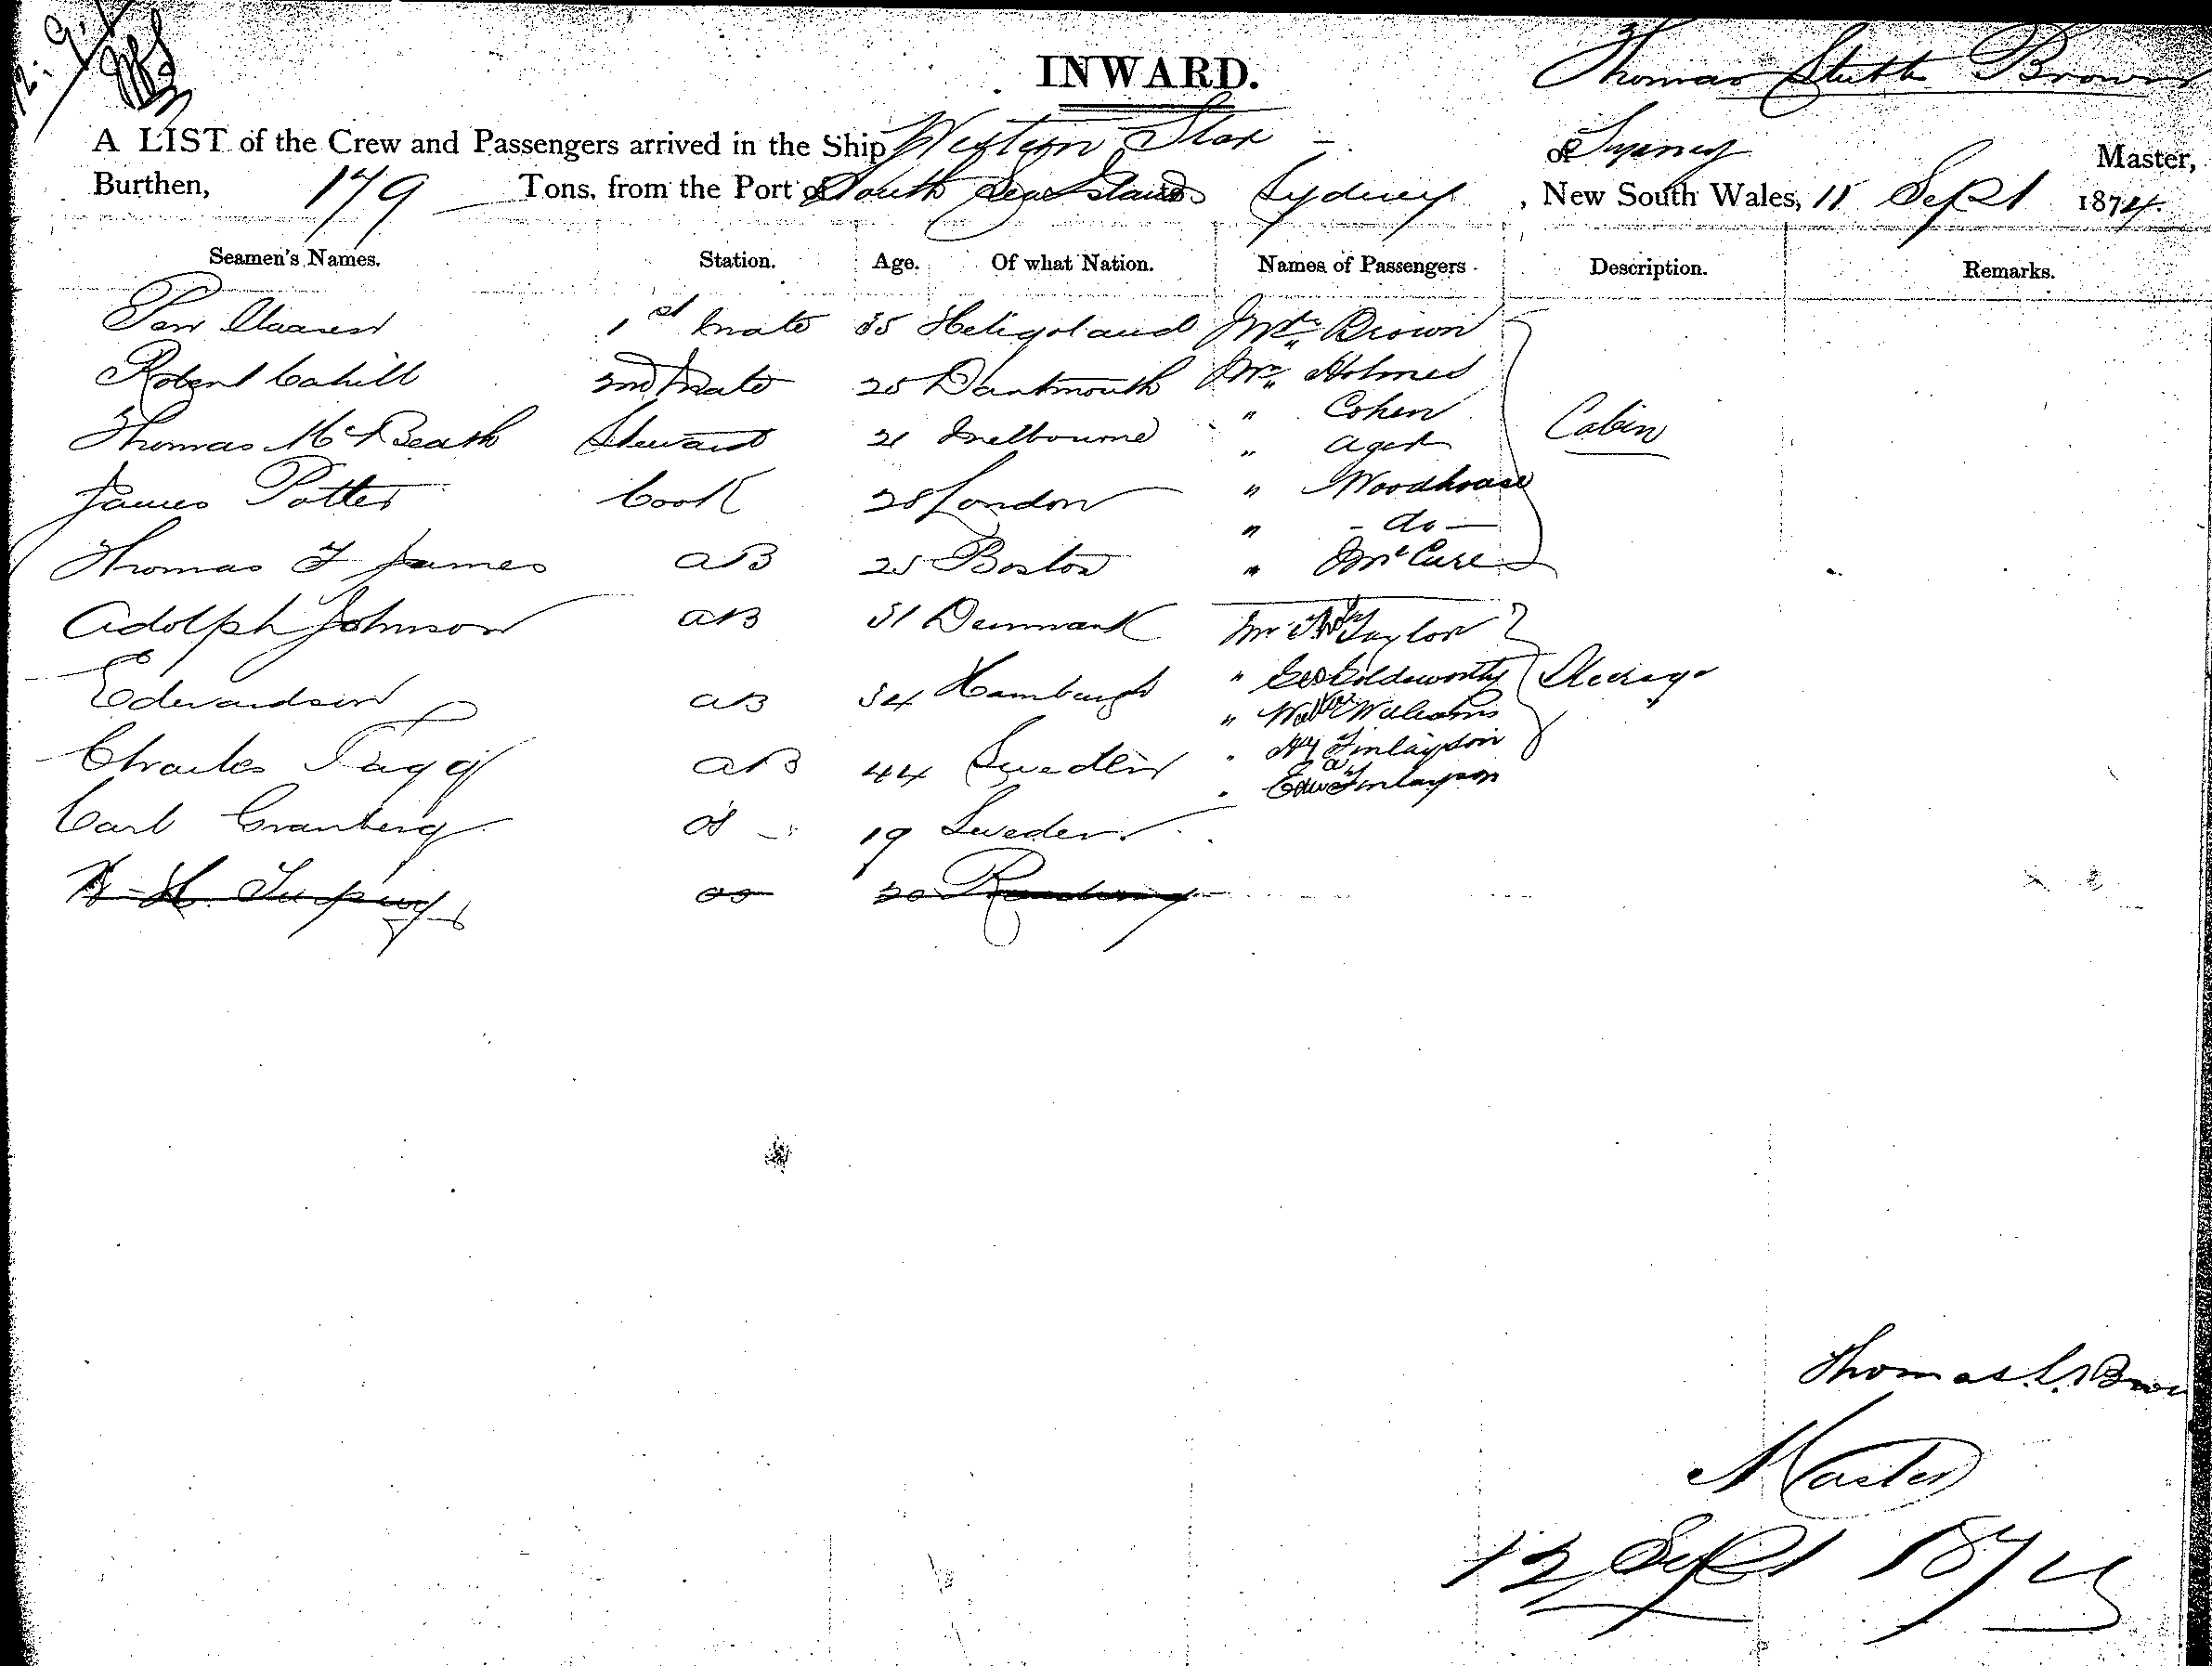 INWARD.
Thomas Brown
A LIST of the Crew and Passengers arrived in the Ship Western Star of Sydney Master,
Burthen, 179 Tons, from the Port of South Sea Islands Sydney, New South Wales, 11 Sept 1874.
Seamen's Names. Station. Age. Of what Nation. Names of Passengers Description. Remarks.
Claasen 1st Mate 35 Heligoland Mrs Brown
Robert Cahill 2nd Mate 25 Dartmouth Mr Holmes
" Cohen
Thomas McBeath Steward 21 Melbourne " Cabin
James Potter Cook 28 London " Woodhouse
" - do -
Thomas F James AB 25 Boston " McCure
Adolph Johnson AB 31 Denmark Mr Thos Taylor
Edwardsen AB 34 Hamburgh " Geo Goldsworthy Steerage
" Walter Williams
Charles Tagg AB 44 Sweden " Hy Finlayson
" Edwd Finlayson
Carl Granberg OS 19 Sweden
H. OS 20
Thomas S. Brow
Master
12 Sept 1874